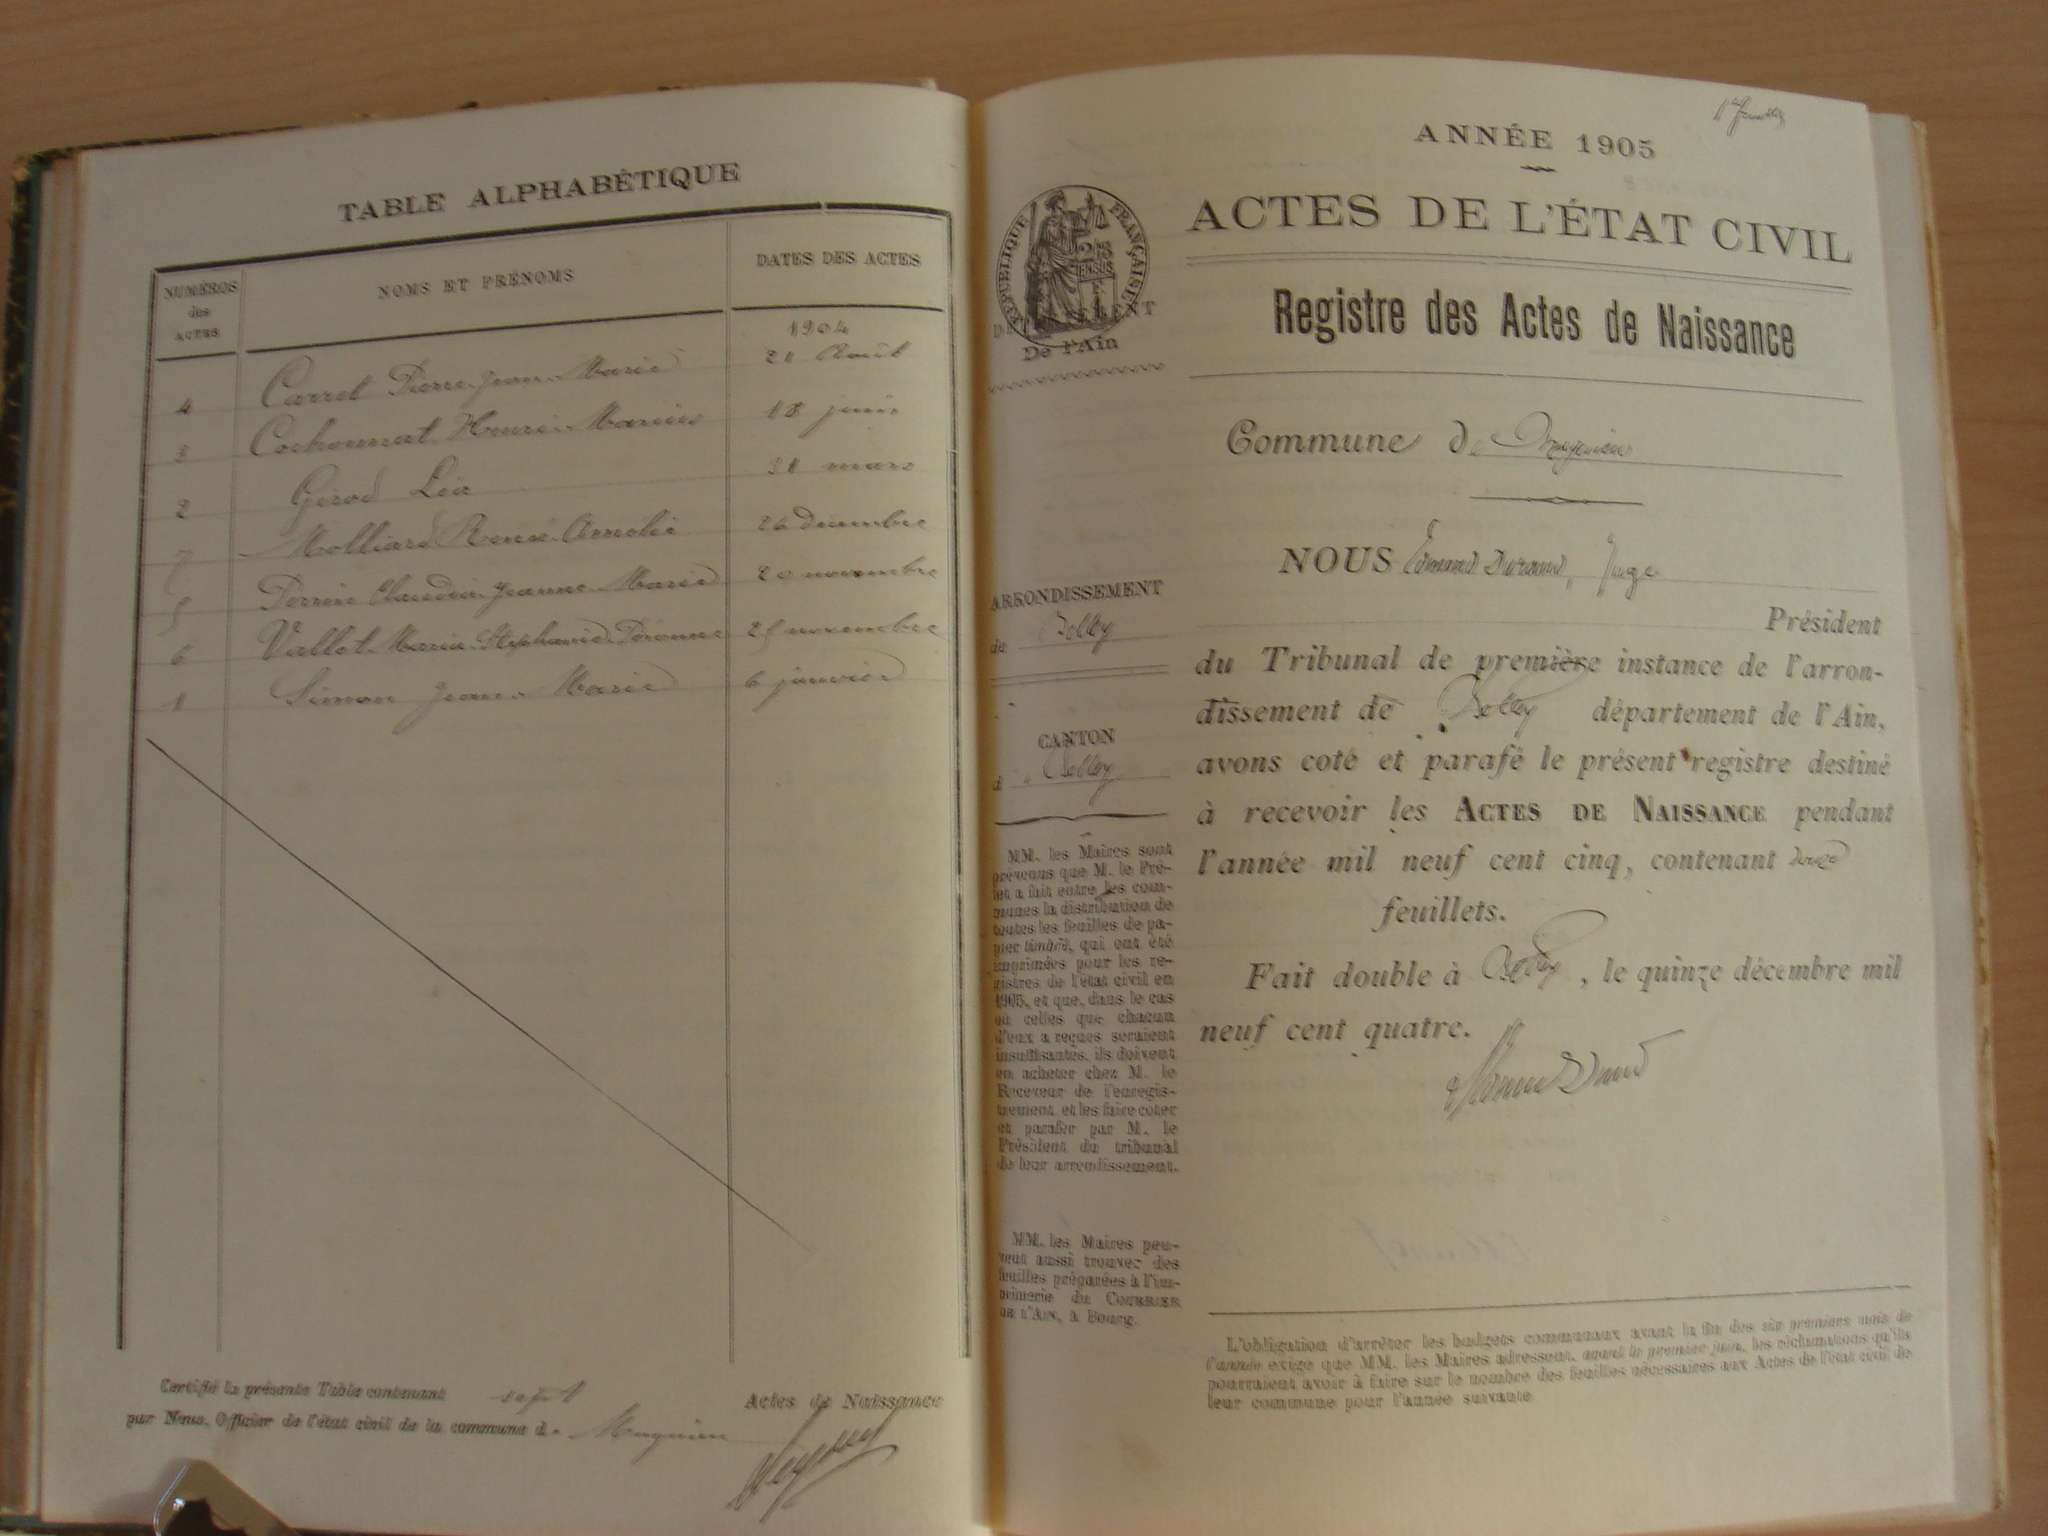 TABLE ALPHABÉTIQUE
NUMÉROS
des
ACTES
NOMS ET PRÉNOMS
DATES DES ACTES
1904
4 Carret Pierre Jean-Marie 21 Août
3 Cochonnat Henri-Marius 18 juin
2 Girod Léa 31 mars
7 Molliard 26 décembre
5 Perrin Claudia Jeanne-Marie 20 novembre
6 Vallet Maria Stéphanie novembre
1 Simon Jean-Marie 6 janvier
Certifié la présente Table contenant sept Actes de Naissance
par Nous, Officier de l'état civil de la commune de Magnieu
ANNÉE 1905
ACTES DE L'ÉTAT CIVIL
RÉPUBLIQUE FRANÇAISE
25
CENTIMES
DÉPARTEMENT
De l'Ain
Registre des Actes de Naissance
Commune de Magnieu
NOUS Edmond Durand, Juge
Président
du Tribunal de première instance de l'arron-
dissement de Belley département de l'Ain,
avons coté et parafé le présent registre destiné
à recevoir les ACTES DE NAISSANCE pendant
l'année mil neuf cent cinq, contenant douze
feuillets.
Fait double à Belley, le quinze décembre mil
neuf cent quatre.
ARRONDISSEMENT
de Belley
CANTON
de Belley
MM. les Maires sont
prévenus que M. le Pré-
fet a fait entre les com-
munes la distribution de
toutes les feuilles de pa-
pier timbré, qui ont été
imprimées pour les re-
gistres de l'état civil en
1905, et que, dans le cas
où celles que chacun
d'eux a reçues seraient
insuffisantes, ils doivent
en acheter chez M. le
Receveur de l'enregis-
trement et les faire coter
et parafer par M. le
Président du tribunal
de leur arrondissement.
MM. les Maires peu-
vent aussi trouver des
feuilles préparées à l'im-
primerie du COURRIER
DE L'AIN, à Bourg.
L'obligation d'arrêter les budgets communaux avant la fin des six premiers mois de
l'année exige que MM. les Maires adressent, avant le premier juin, les réclamations qu'ils
pourraient avoir à faire sur le nombre des feuilles nécessaires aux Actes de l'état civil de
leur commune pour l'année suivante